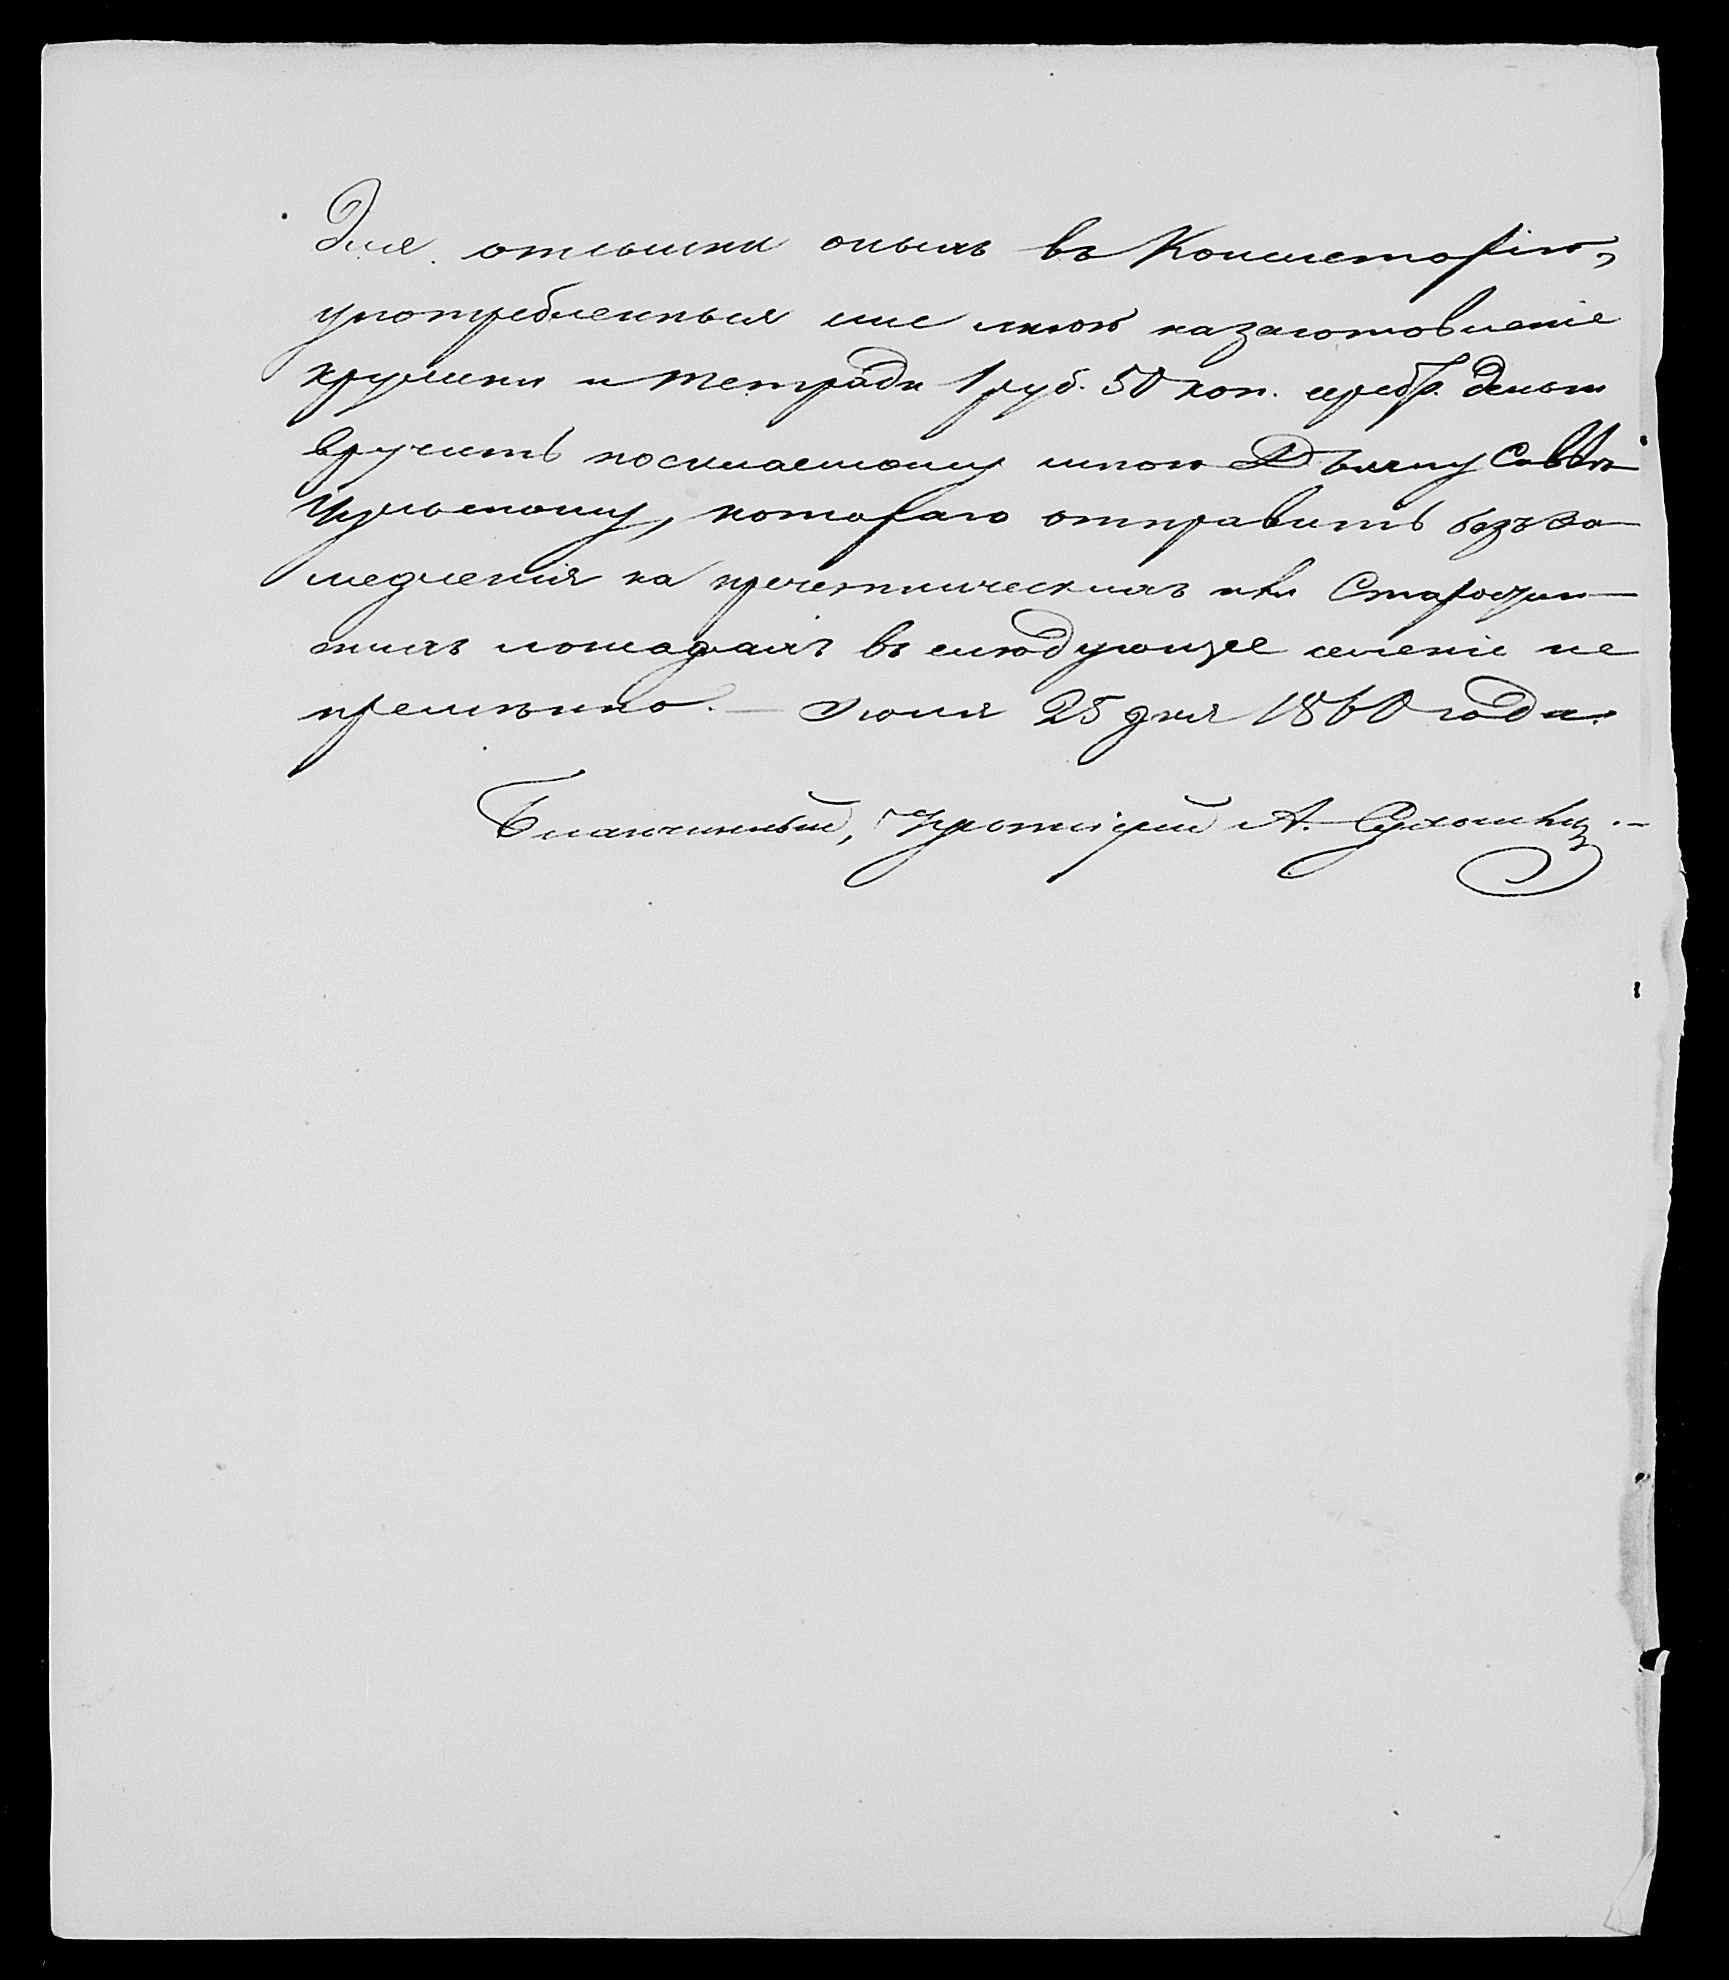 Для отсылки оныхъ въ Консисторію,
употребленныя мною на заготовленіе
кружки и тетради 1 руб. 50 коп. сереб. деньги
вручить посылаемому мною Дьячку Саввѣ
которого отправить безъ за-
медленія на причетническихъ или Старости-
нихъ лошадяхъ въ слюдующее селеніе не
премѣнно. — Іюля 25 дня 1860 года.
Благочинный, Протоіерей А.